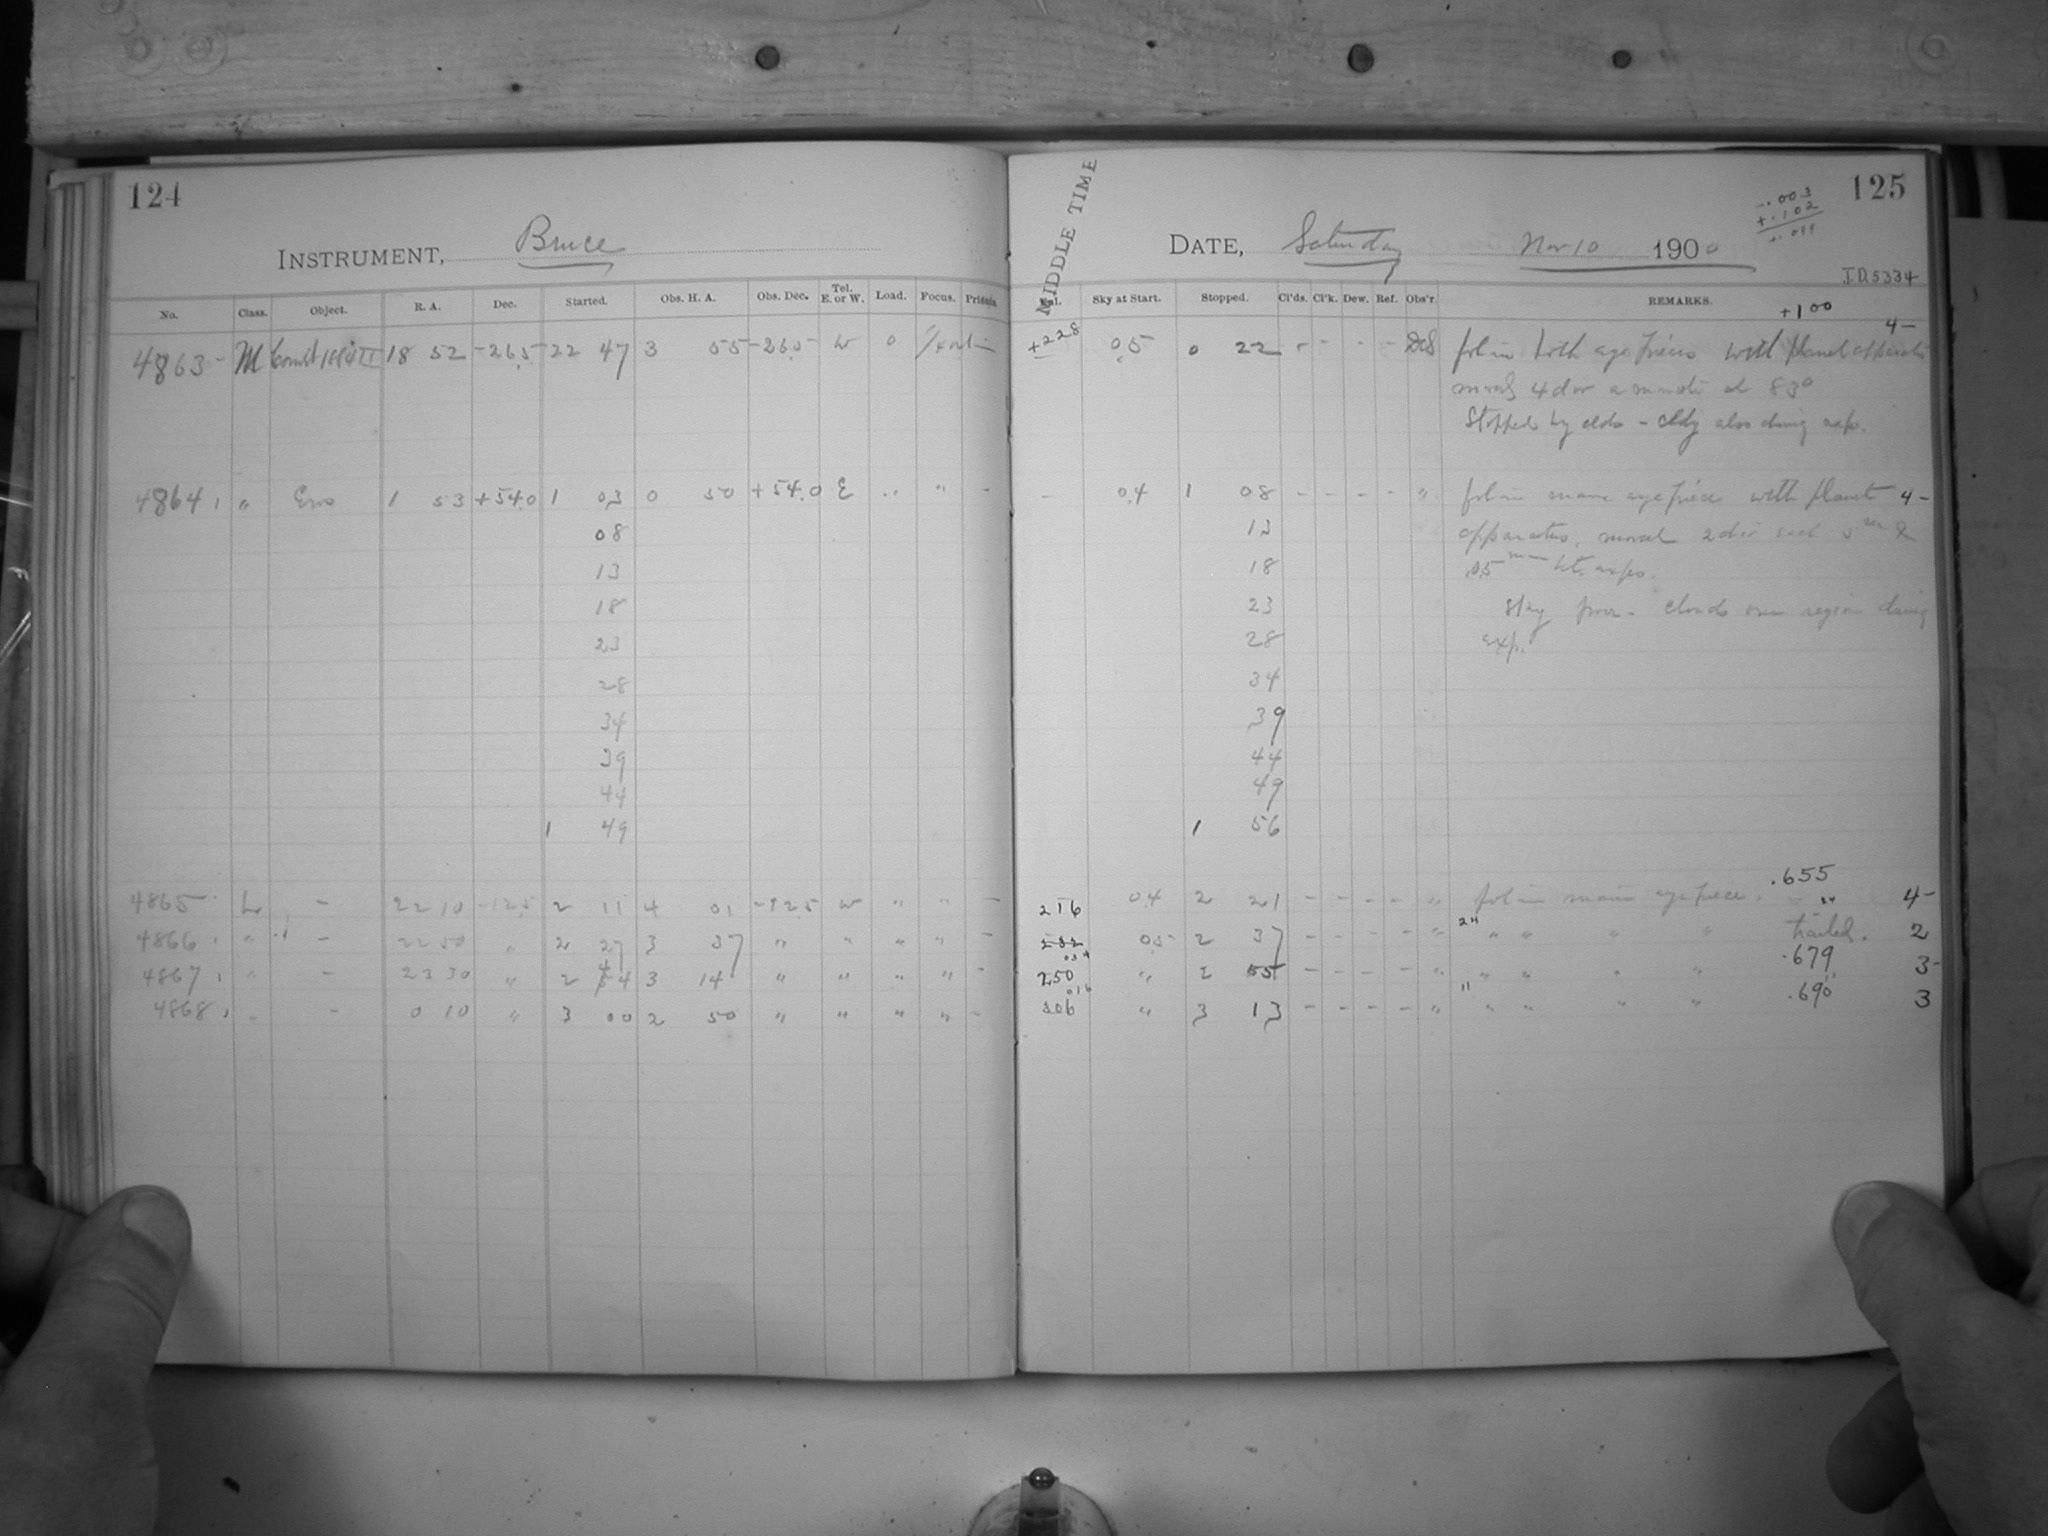 124
INSTRUMENT, Bruce
No. Class. Object. R. A. Dec. Started. Obs. H. A. Obs. Dec. Tel. E. or W. Load. Focus. Prisms.
4863 M 1884 II 18 52 -26.5 22 47 3 55 -26.5 W 0
4864 " Eros 1 53 +54.0 1 03 0 50 +54.0 E " " -
08
13
18
23
28
34
39
44
1 49
4865 L - 22 10 -12.5 2 11 4 01 -12.5 W " " -
4866 " - 22 50 " 2 27 3 37 " " " " -
4867 " - 23 30 " 2 44 3 14 " " " " -
4868 " - 0 10 " 3 00 2 50 " " " " -
125
MIDDLE TIME
-.003
+.102
+.099
DATE, Saturday Nov 10 1900
J.D. 5334
Sky at Start. Stopped. Cl'ds. Cl'k. Dew. Ref. Obs'r. REMARKS.
+100
+228 0.5 0 22 - - - - fol in both eye pieces with planet apparatus 4-
moved 4 div a minute at 83°
Stopped by clds - cldy also during exp.
- 0.4 1 08 - - - - " fol in main eyepiece with planet 4-
13 apparatus, moved 2 div each 5m &
18 exps.
23 Sky poor. clouds over region during
28 exp.
34
39
44
49
1 56
.655
216 0.4 2 21 - - - - " fol in main eye piece. 24 4-
232 0.5 2 37 - - - - " 24 " " " " trailed. 2
034 .679
250 " 2 55 - - - - " " " " " 3-
016 11 11 .690
306 " 3 13 - - - - " " " " " 3